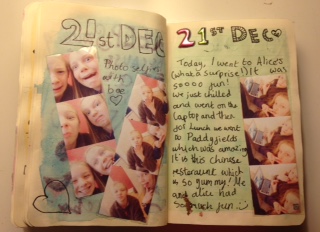 21st DEC
Photo selfies
with
bae
21st DEC
Today, I went to Alice's
(what a surprise!) It was
soooo fun!
We just chilled
and went on the
laptop and then
for lunch we went
to Paddyfields
which was amazing
It is this chinese
restaraunt which
is so yummy! Me
and alice had
so much fun :)